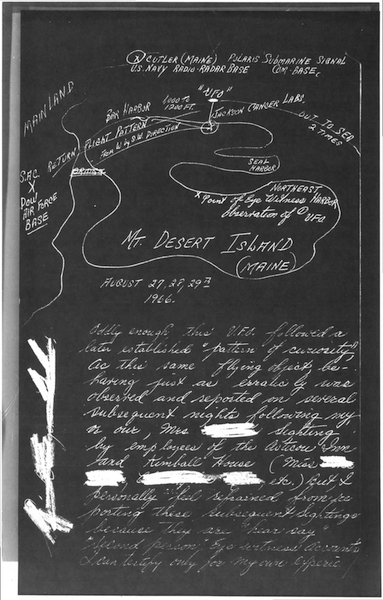 Ⓧ CUTLER (MAINE) POLARIS SUBMARINE SIGNAL
U.S. NAVY RADIO-RADAR BASE COM-BASE,
MAINLAND
"UFO"
1000 TO
1200 FT.
BAR HARBOR
JACKSON CANCER LABS.
OUT TO SEA
2 TIMES
RETURN FLIGHT PATTERN
FROM W by S.W. DIRECTION
BRIDGE
S.A.C.
X
DOW
AIR FORCE
BASE
SEAL
HARBOR
NORTHEAST
HARBOR
X Point of Eye Witness
Observation of UFO.
MT. DESERT ISLAND
(MAINE)
AUGUST 27, 28, 29TH
1966.
Oddly enough this U.F.O. followed a
later established "pattern of curiosity"
as this same flying object, be-
having just as erratically was
observed and reported on several
subsequent nights following my
or our, Mrs sighting
by employees of the Asticou Inn
and Kimball House (Miss
etc.) But I
personally feel refrained from re
porting these subsequent sightings
because they are "hear say"
"Second person" Eye witness accounts
I can testify only for my own experic